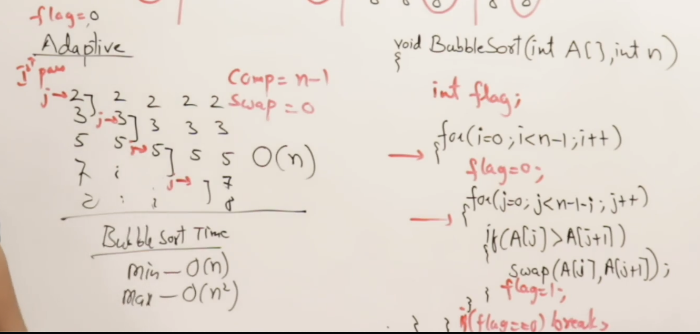 flag=0
Adaptive
1st pass
Comp = n-1
Swap = 0
j→ 2 2 2 2 2
3 j→ 3 3 3 3
5 5 5 5 5
7 j→ 7
8
O(n)
Bubble Sort Time
Min — O(n)
Max — O(n²)
void BubbleSort(int A[], int n)
{
int flag;
for(i=0; i<n-1; i++)
{
flag=0;
for(j=0; j<n-1-i; j++)
{
if(A[j]>A[j+1])
{
swap(A[j],A[j+1]);
flag=1;
} }
} } if(flag==0) break;